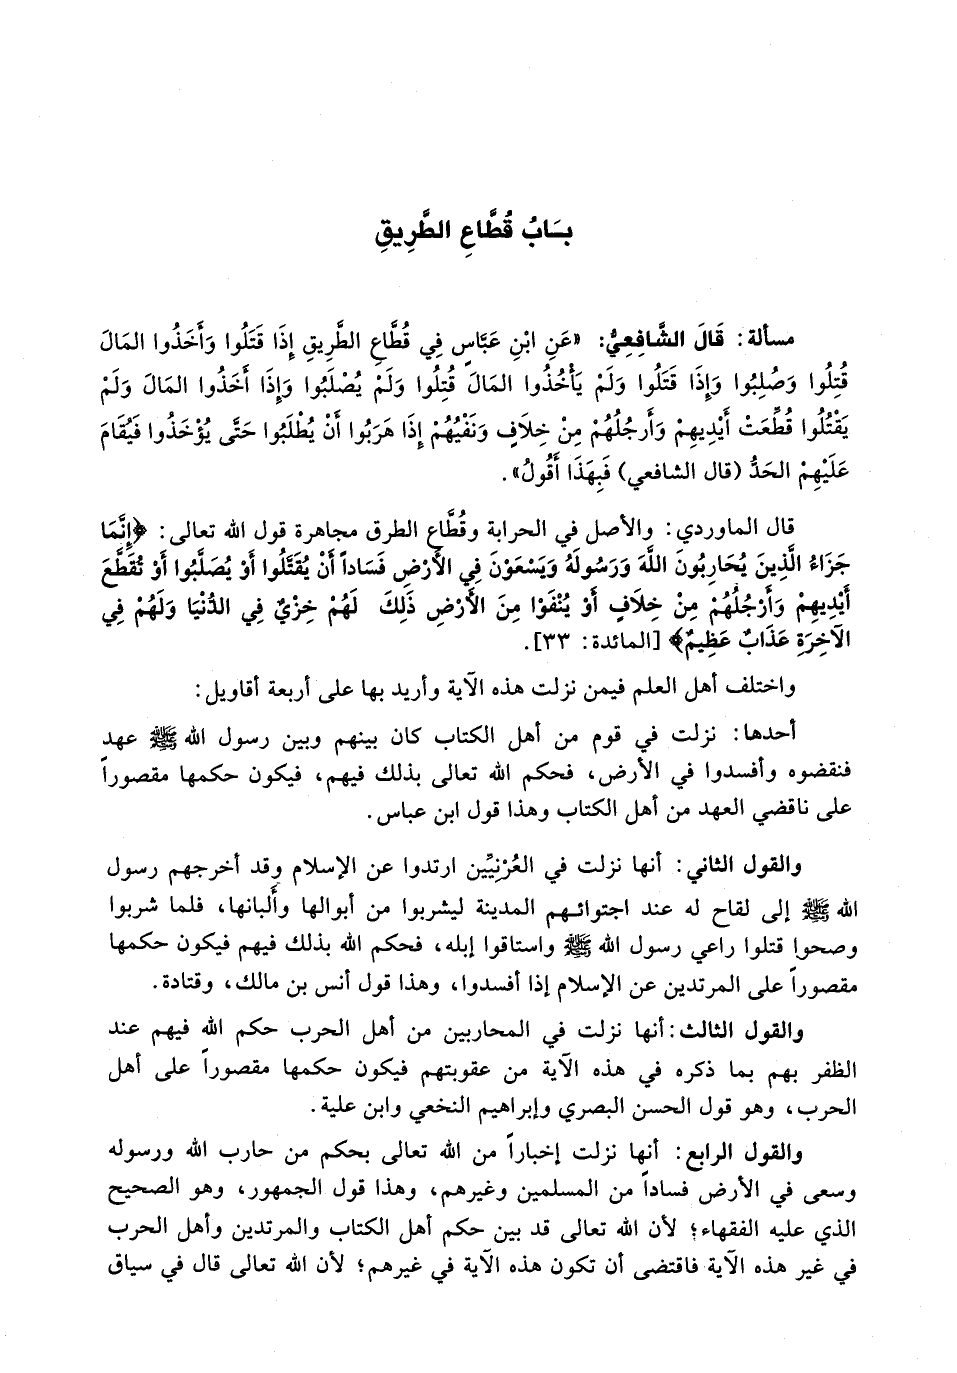 بَابُ قُطَّاعِ الطَّرِيقِ
مسألة: قَالَ الشَّافِعِيُّ: «عَنِ ابْنِ عَبَّاسٍ فِي قُطَّاعِ الطَّرِيقِ إِذَا قَتَلُوا وَأَخَذُوا المَالَ
قُتِلُوا وَصُلِبُوا وَإِذَا قَتَلُوا وَلَمْ يَأْخُذُوا المَالَ قُتِلُوا وَلَمْ يُصْلَبُوا وَإِذَا أَخَذُوا المَالَ وَلَمْ
يَقْتُلُوا قُطِّعَتْ أَيْدِيهِمْ وَأَرجُلُهُمْ مِنْ خِلَافٍ وَنَفْيُهُمْ إِذَا هَرَبُوا أَنْ يُطْلَبُوا حَتَّى يُؤْخَذُوا فَيُقَامَ
عَلَيْهِمْ الحَدُّ (قال الشافعي) فَبِهَذَا أَقُولُ».
قال الماوردي: والأصل في الحرابة وقُطَّاع الطرق مجاهرة قول الله تعالى: ﴿إِنَّمَا
جَزَاءُ الَّذِينَ يُحَارِبُونَ اللَّهَ وَرَسُولَهُ وَيَسْعَوْنَ فِي الأَرْضِ فَسَاداً أَنْ يُقَتَّلُوا أَوْ يُصَلَّبُوا أَوْ تُقَطَّعَ
أَيْدِيهِمْ وَأَرْجُلُهُمْ مِنْ خِلَافٍ أَوْ يُنْفَوْا مِنَ الأَرْضِ ذَلِكَ لَهُمْ خِزْيٌ فِي الدُّنْيَا وَلَهُمْ فِي
الآخِرَةِ عَذَابٌ عَظِيمٌ﴾ [المائدة: ٣٣].
واختلف أهل العلم فيمن نزلت هذه الآية وأريد بها على أربعة أقاويل:
أحدها: نزلت في قوم من أهل الكتاب كان بينهم وبين رسول الله ﷺ عهد
فنقضوه وأفسدوا في الأرض، فحكم الله تعالى بذلك فيهم، فيكون حكمها مقصوراً
على ناقضي العهد من أهل الكتاب وهذا قول ابن عباس.
والقول الثاني: أنها نزلت في العُرْنِيِّين ارتدوا عن الإسلام وقد أخرجهم رسول
الله ﷺ إلى لقاح له عند اجتوائهم المدينة ليشربوا من أبوالها وأَلبانها، فلما شربوا
وصحوا قتلوا راعي رسول الله ﷺ واستاقوا إبله، فحكم الله بذلك فيهم فيكون حكمها
مقصوراً على المرتدين عن الإسلام إذا أفسدوا، وهذا قول أنس بن مالك، وقتادة.
والقول الثالث: أنها نزلت في المحاربين من أهل الحرب حكم الله فيهم عند
الظفر بهم بما ذكره في هذه الآية من عقوبتهم فيكون حكمها مقصوراً على أهل
الحرب، وهو قول الحسن البصري وإبراهيم النخعي وابن علية.
والقول الرابع: أنها نزلت إخباراً من الله تعالى بحكم من حارب الله ورسوله
وسعى في الأرض فساداً من المسلمين وغيرهم، وهذا قول الجمهور، وهو الصحيح
الذي عليه الفقهاء؛ لأن الله تعالى قد بين حكم أهل الكتاب والمرتدين وأهل الحرب
في غير هذه الآية فاقتضى أن تكون هذه الآية في غيرهم؛ لأن الله تعالى قال في سياق